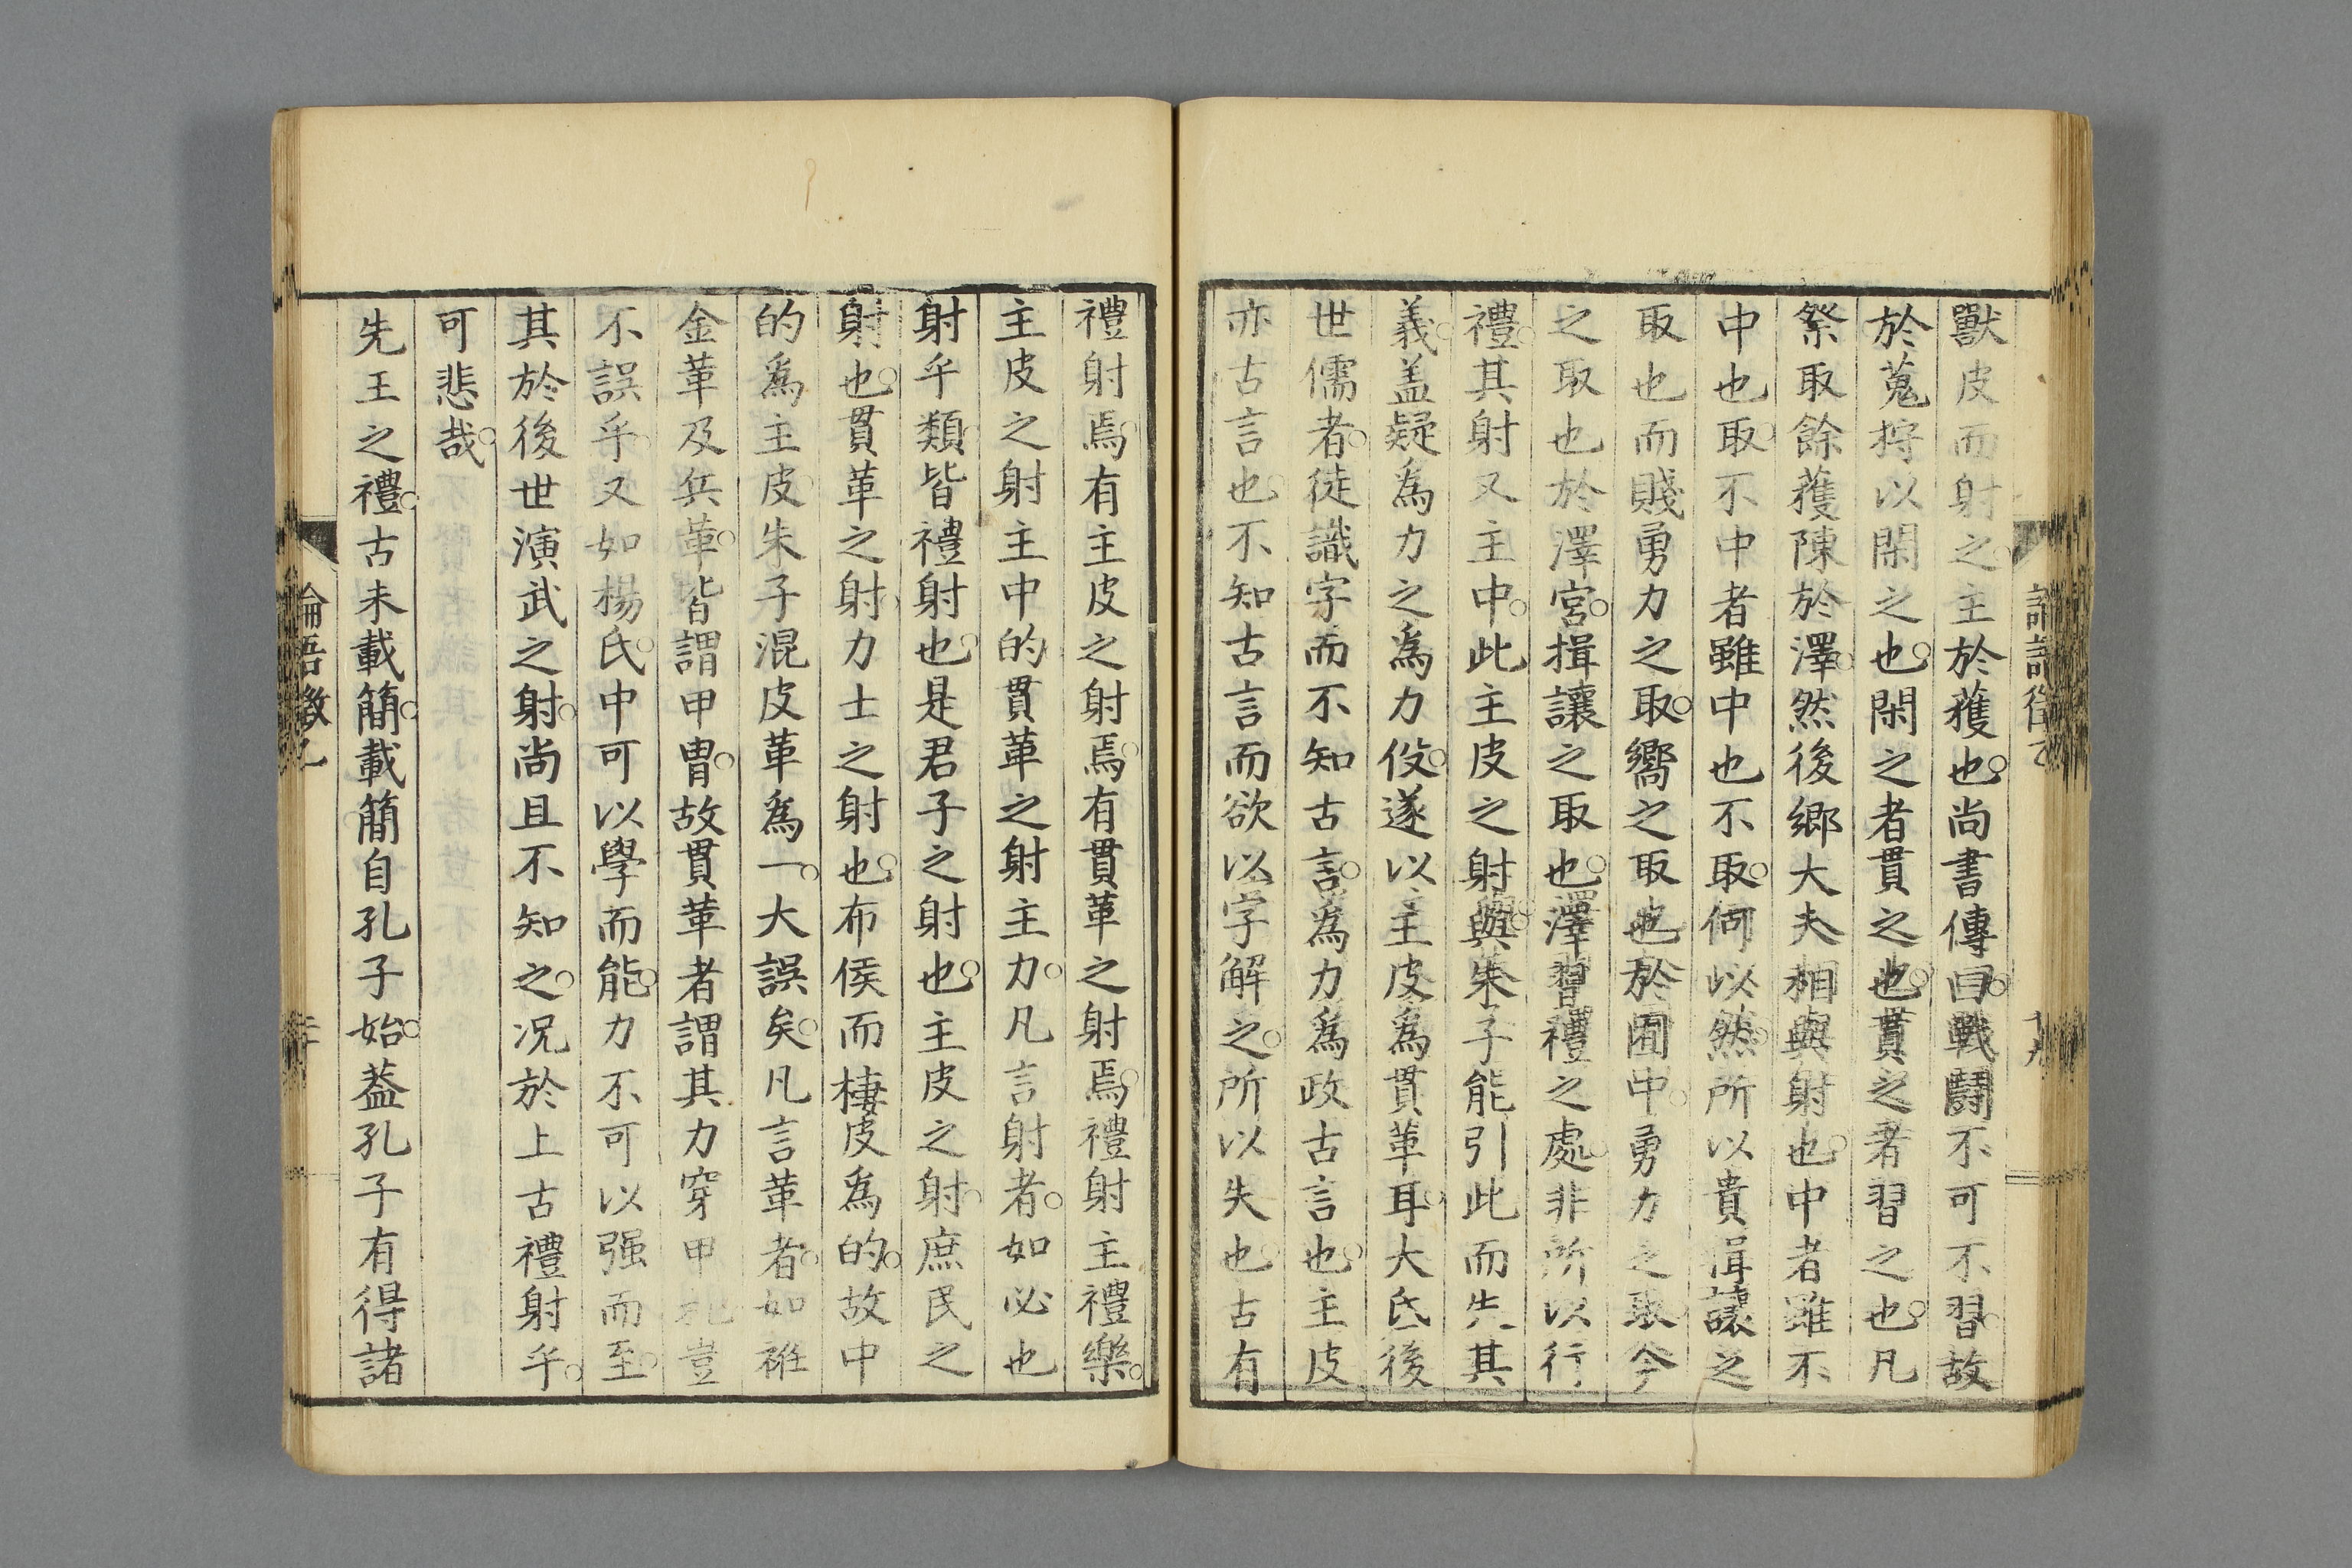 獸皮而射之主於獲也尚書傳曰戰鬪不可不習故
於蒐狩以閑之也閑之者貫之也貫之者習之也凡
祭取餘獲陳於澤然後鄉大夫相與射也中者雖不
中也取不中者雖中也不取何以然所以貴揖讓之
取也而賤勇力之取嚮之取也於囿中勇力之取今
之取也於澤宮揖讓之取也澤習禮之處非所以行
禮其射又主中此主皮之射與朱子能引此而失其
義盖疑爲力之爲力伇遂以主皮爲貫革耳大氐後
世儒者徒識字而不知古言爲力爲政古言也主皮
亦古言也不知古言而欲以字解之所以失也古有
論語徵乙
十九
禮射焉有主皮之射焉有貫革之射焉禮射主禮樂
主皮之射主中的貫革之射主力凡言射者如必也
射乎類皆禮射也是君子之射也主皮之射庶民之
射也貫革之射力士之射也布侯而棲皮爲的故中
的爲主皮朱子混皮革爲一大誤矣凡言革者如衽
金革及兵革皆謂甲冑故貫革者謂其力穿甲札豈
不誤乎又如楊氏中可以學而能力不可以强而至
其於後世演武之射尚且不知之况於上古禮射乎
可悲哉
先王之禮古未載簡載簡自孔子始葢孔子有得諸
論語徵乙